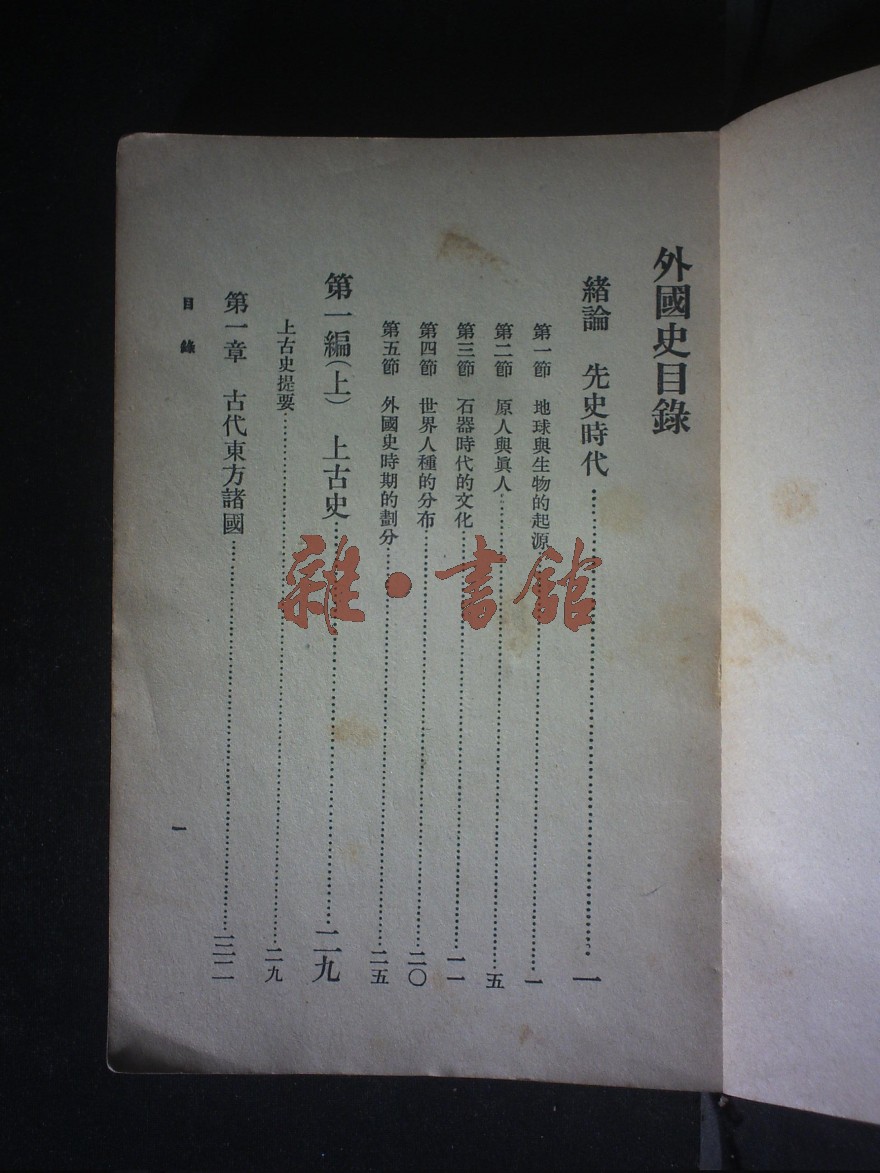 外國史目錄
緒論　先史時代……一
第一節　地球與生物的起源……一
第二節　原人與眞人……五
第三節　石器時代的文化……一一
第四節　世界人種的分布……二〇
第五節　外國史時期的劃分……二五
第一編(上)　上古史……二九
上古史提要……二九
第一章　古代東方諸國……三二
目錄
一
雜·書館